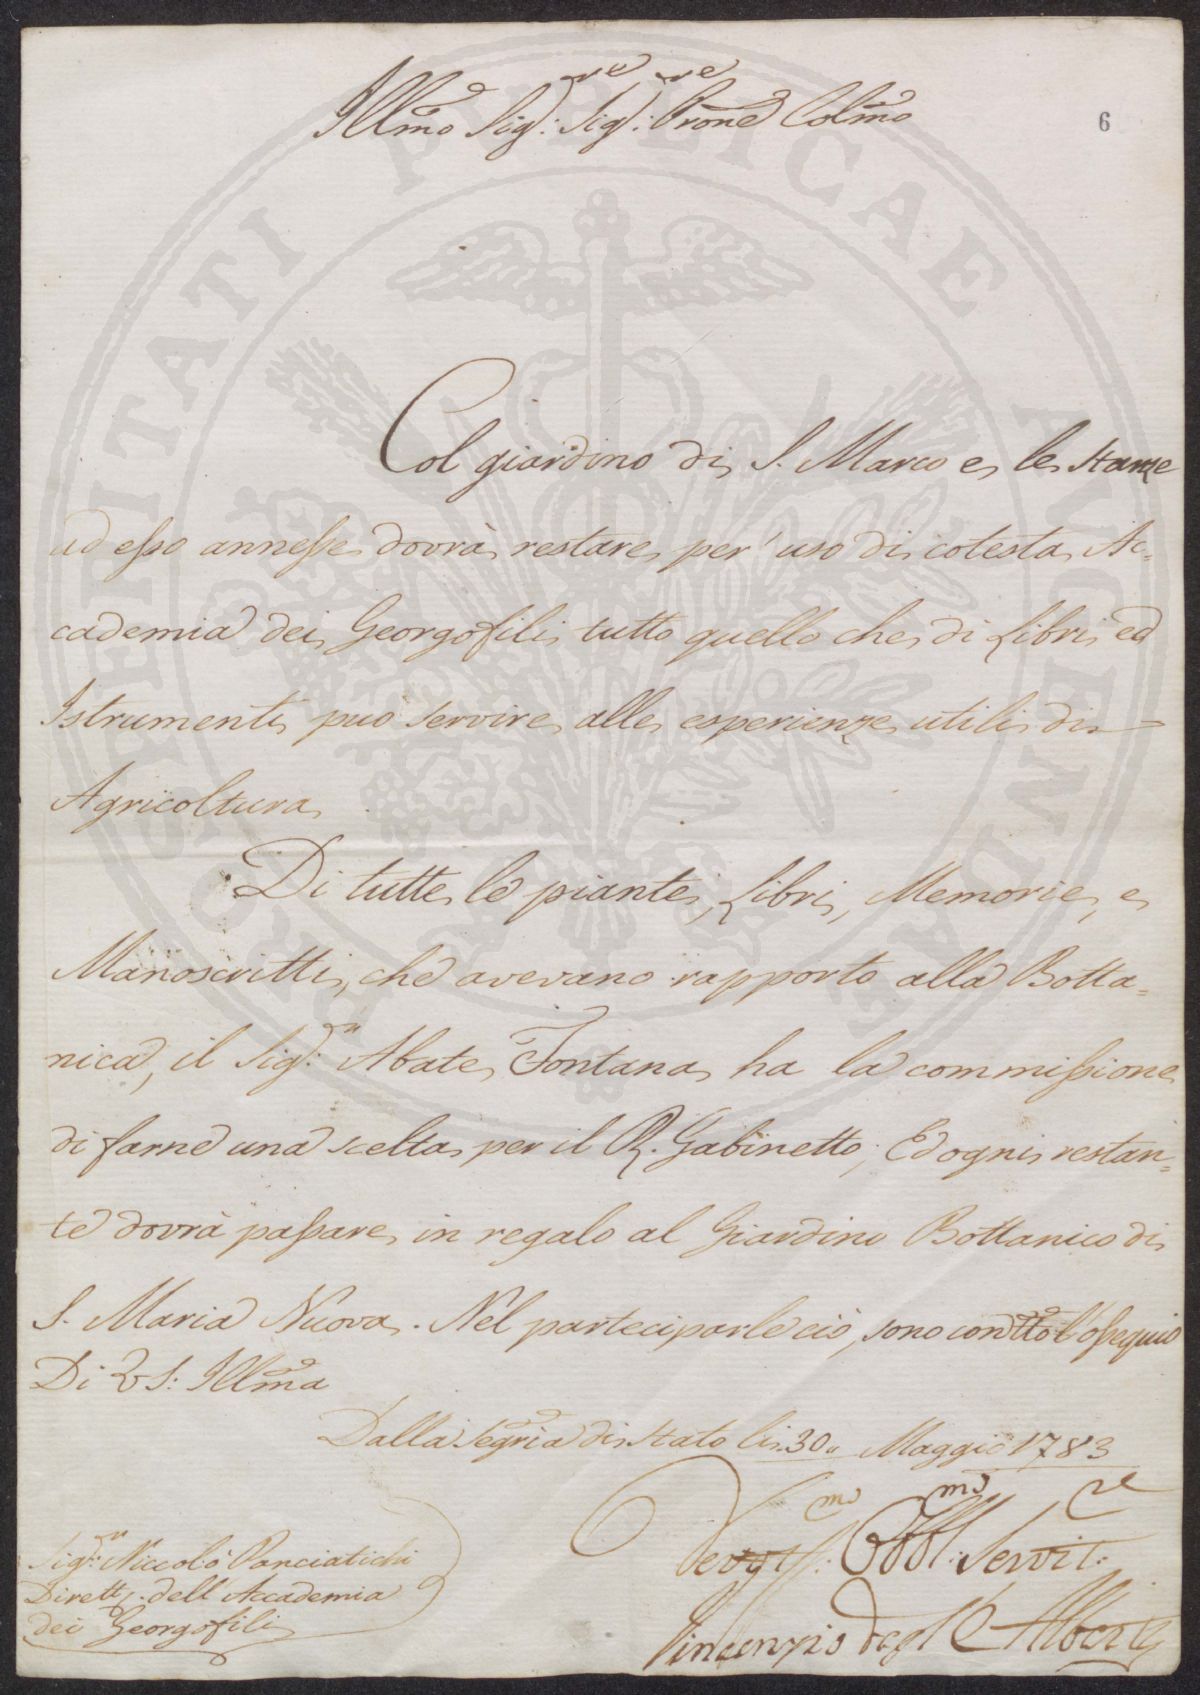 Illmo Sig:re Sig:re Prone Colmo
6
Col giardino di S. Marco e le stanze
ad esso annesse dovrà restare per uso di cotesta Ac=
cademia dei Georgofili tutto quello che di Libri ed
Istrumenti può servire alle esperienze utili di
Agricoltura
Di tutte le piante, Libri, Memorie, e
Manoscritti, che avevano rapporto alla Botta=
nica, il Sig:r Abate Fontana ha la commissione
di farne una scelta per il R. Gabinetto; Ed ogni restan=
te dovrà passare in regalo al Giardino Bottanico di
S. Maria Nuova. Nel parteciparle ciò, sono con tto l'ossequio
Di VS: Illma
Dalla Segria di Stato li 30. Maggio 1783
Devotss:mo Obbl:mo Servit:re
Vincenzio degl'Alberti
Sig:r Niccolò Panciatichi
Dirett:. dell'Accademia
dei Georgofili
PROSPERITATI PUBLICAE AUGENDAE